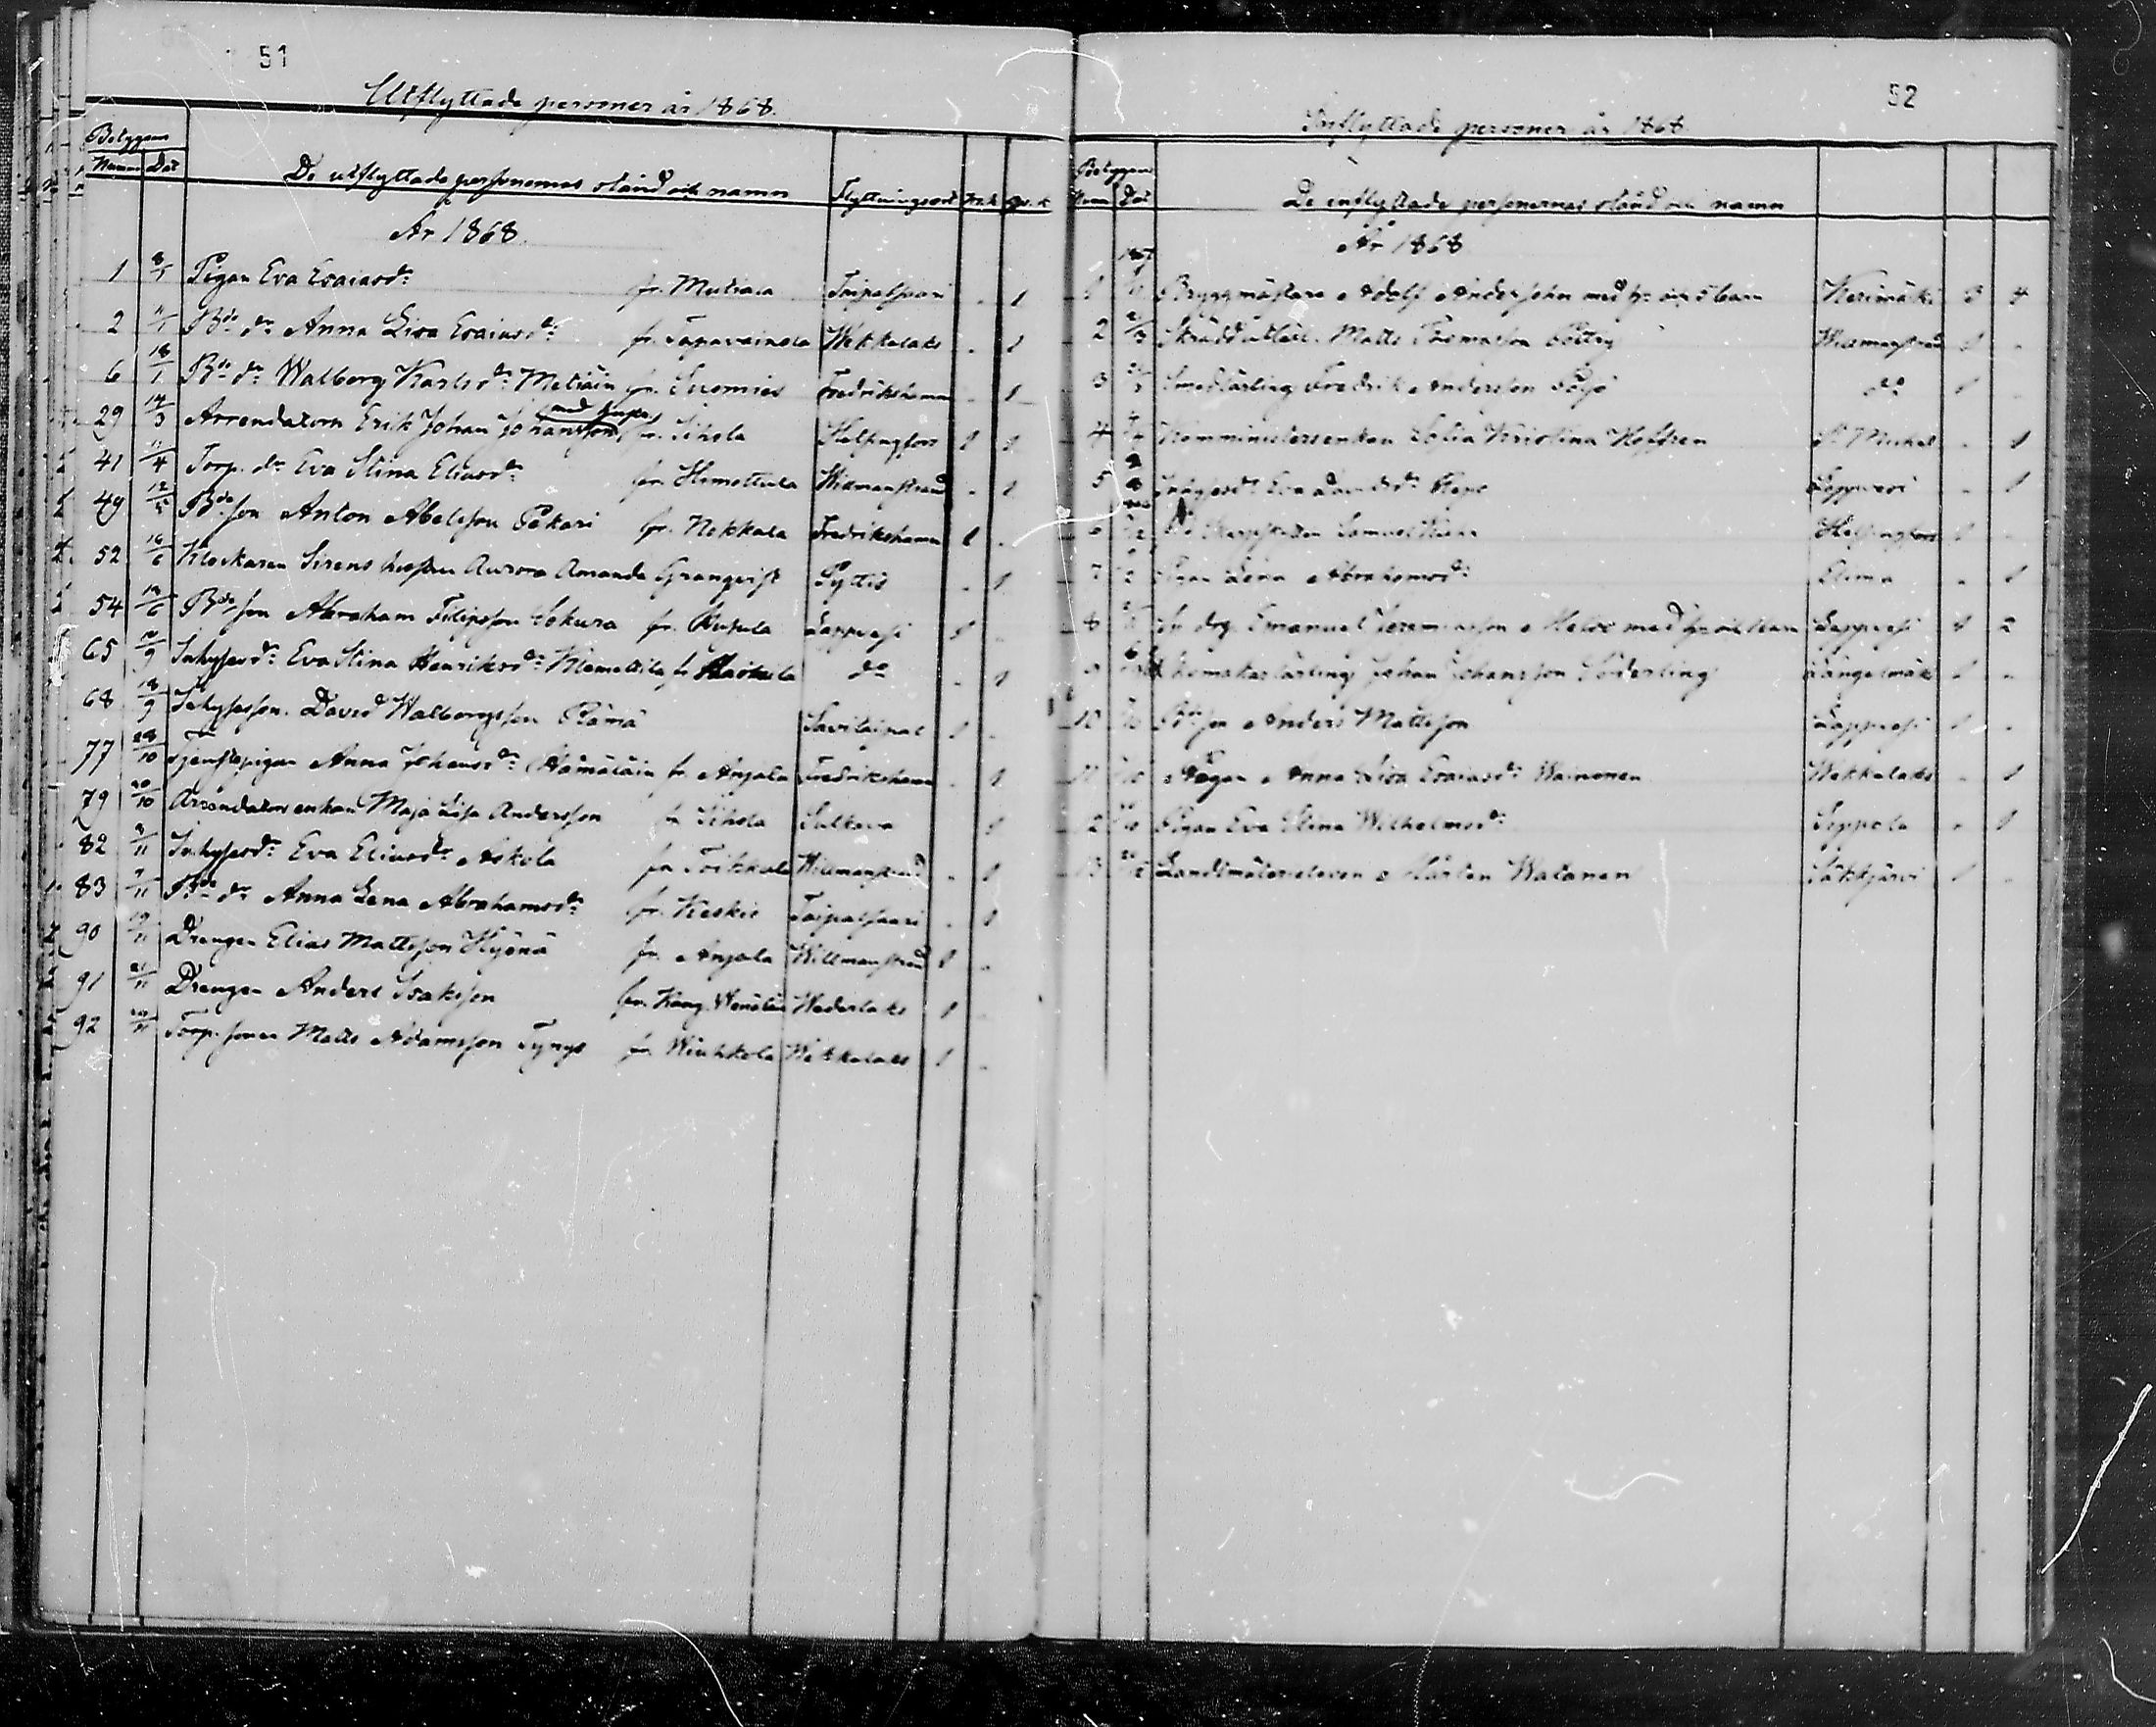 51
Utflyttade personer år 1868.
Betygens
Numm Dat De utflyttade personernas stånd och namn Flyttningsort M.k Qv.k
År 1868.
1 8/1 Pigan Eva Esaiasdr fr. Mutiala Taipalsaari - 1
2 11/1 Bde dr Anna Lisa Esaiasdr fr. Tapavainola Wekkalaks - 1
6 18/1 Bde dr Walborg Karlsdr Metiäin fr. Suomies Fredrikshamn - 1
med hustru
29 14/3 Arrendatorn Erik Johan Johansson fr. Sihola Helsingfors 1 1
41 11/4 Torp. dr Eva Stina Eliasdr från Himottula Wilmanstrand - 1
49 12/5 Bdeson Anton Abelsson Pekari fr. Nokkala Fredrikshamn 1 -
52 16/6 Klockaren Sirens hustru Aurora Amanda Granqvist Pyttis - 1
54 19/6 Bdeson Abraham Filipsson Sokura fr. Pupula Lappvesi 1 -
65 10/9 Inhysesdr Eva Stina Henriksdr Klemettilä fr. do - 1
68 18/9 Inhysesson David Walborgsson Rämä Savitaipal 1 -
77 28/10 Tjenstepigan Anna Johansdr Hämäläin fr. Anjala Fredrikshamn - 1
79 30/10 Arrendatorenkan Maja Lisa Andersson fr. Sihola Sulkava 1
82 9/11 Inhysesdr Eva Eliasdr Askola från Toikkala Willmanstrand - 1
83 9/11 Bde dr Anna Lena Abrahamsdr fr. Keskis Taipalsaari - 1
90 19/11 Drengen Elias Mattsson Hyönä fr. Anjala Willmanstrand 1 -
91 21/11 Drengen Anders Isaksson fr. Kong. Wederlaks 1 -
92 /11 Torp. sonen Matts Adamsson Tynys fr. Wiuhkola Wekkalaks 1 -
52
Inflyttade personer år 1868
Betygens
Num Dat De inflyttade personernas stånd och namn
År 1868
1867
1 Byggmästare Adolf Andersohn med hu och 5 barn Kerimäki 3 4
2 Matts Thomasson Wilmanstrand 1 -
3 Smedlärling Fredrik Andersson do 1 -
4 Komministersenkan Sofia Kristina Hoffren St Michel - 1
5 Inhysesdr Eva Davidsdr Lappvesi - 1
6 Samuel Helsingfors 1 -
7 Pigan Lena Abrahamsdr Elimä - 1
8 drg. Emanuel Jeremiasson med hu och barn Lappvesi 1 2
9 Skomakarlärling Johan Johansson Söderling Längelmäki 1 -
10 Bdeson Anders Mattsson Lappvesi 1 -
11 Pigan Anna Lisa Esaiasdr Wainonen Wekkalaks - 1
12 Pigan Eva Stina Wilhelmsdr Sippola - 1
13 Landtmäterieleven Mårten Watanen Säkkjärvi 1 -